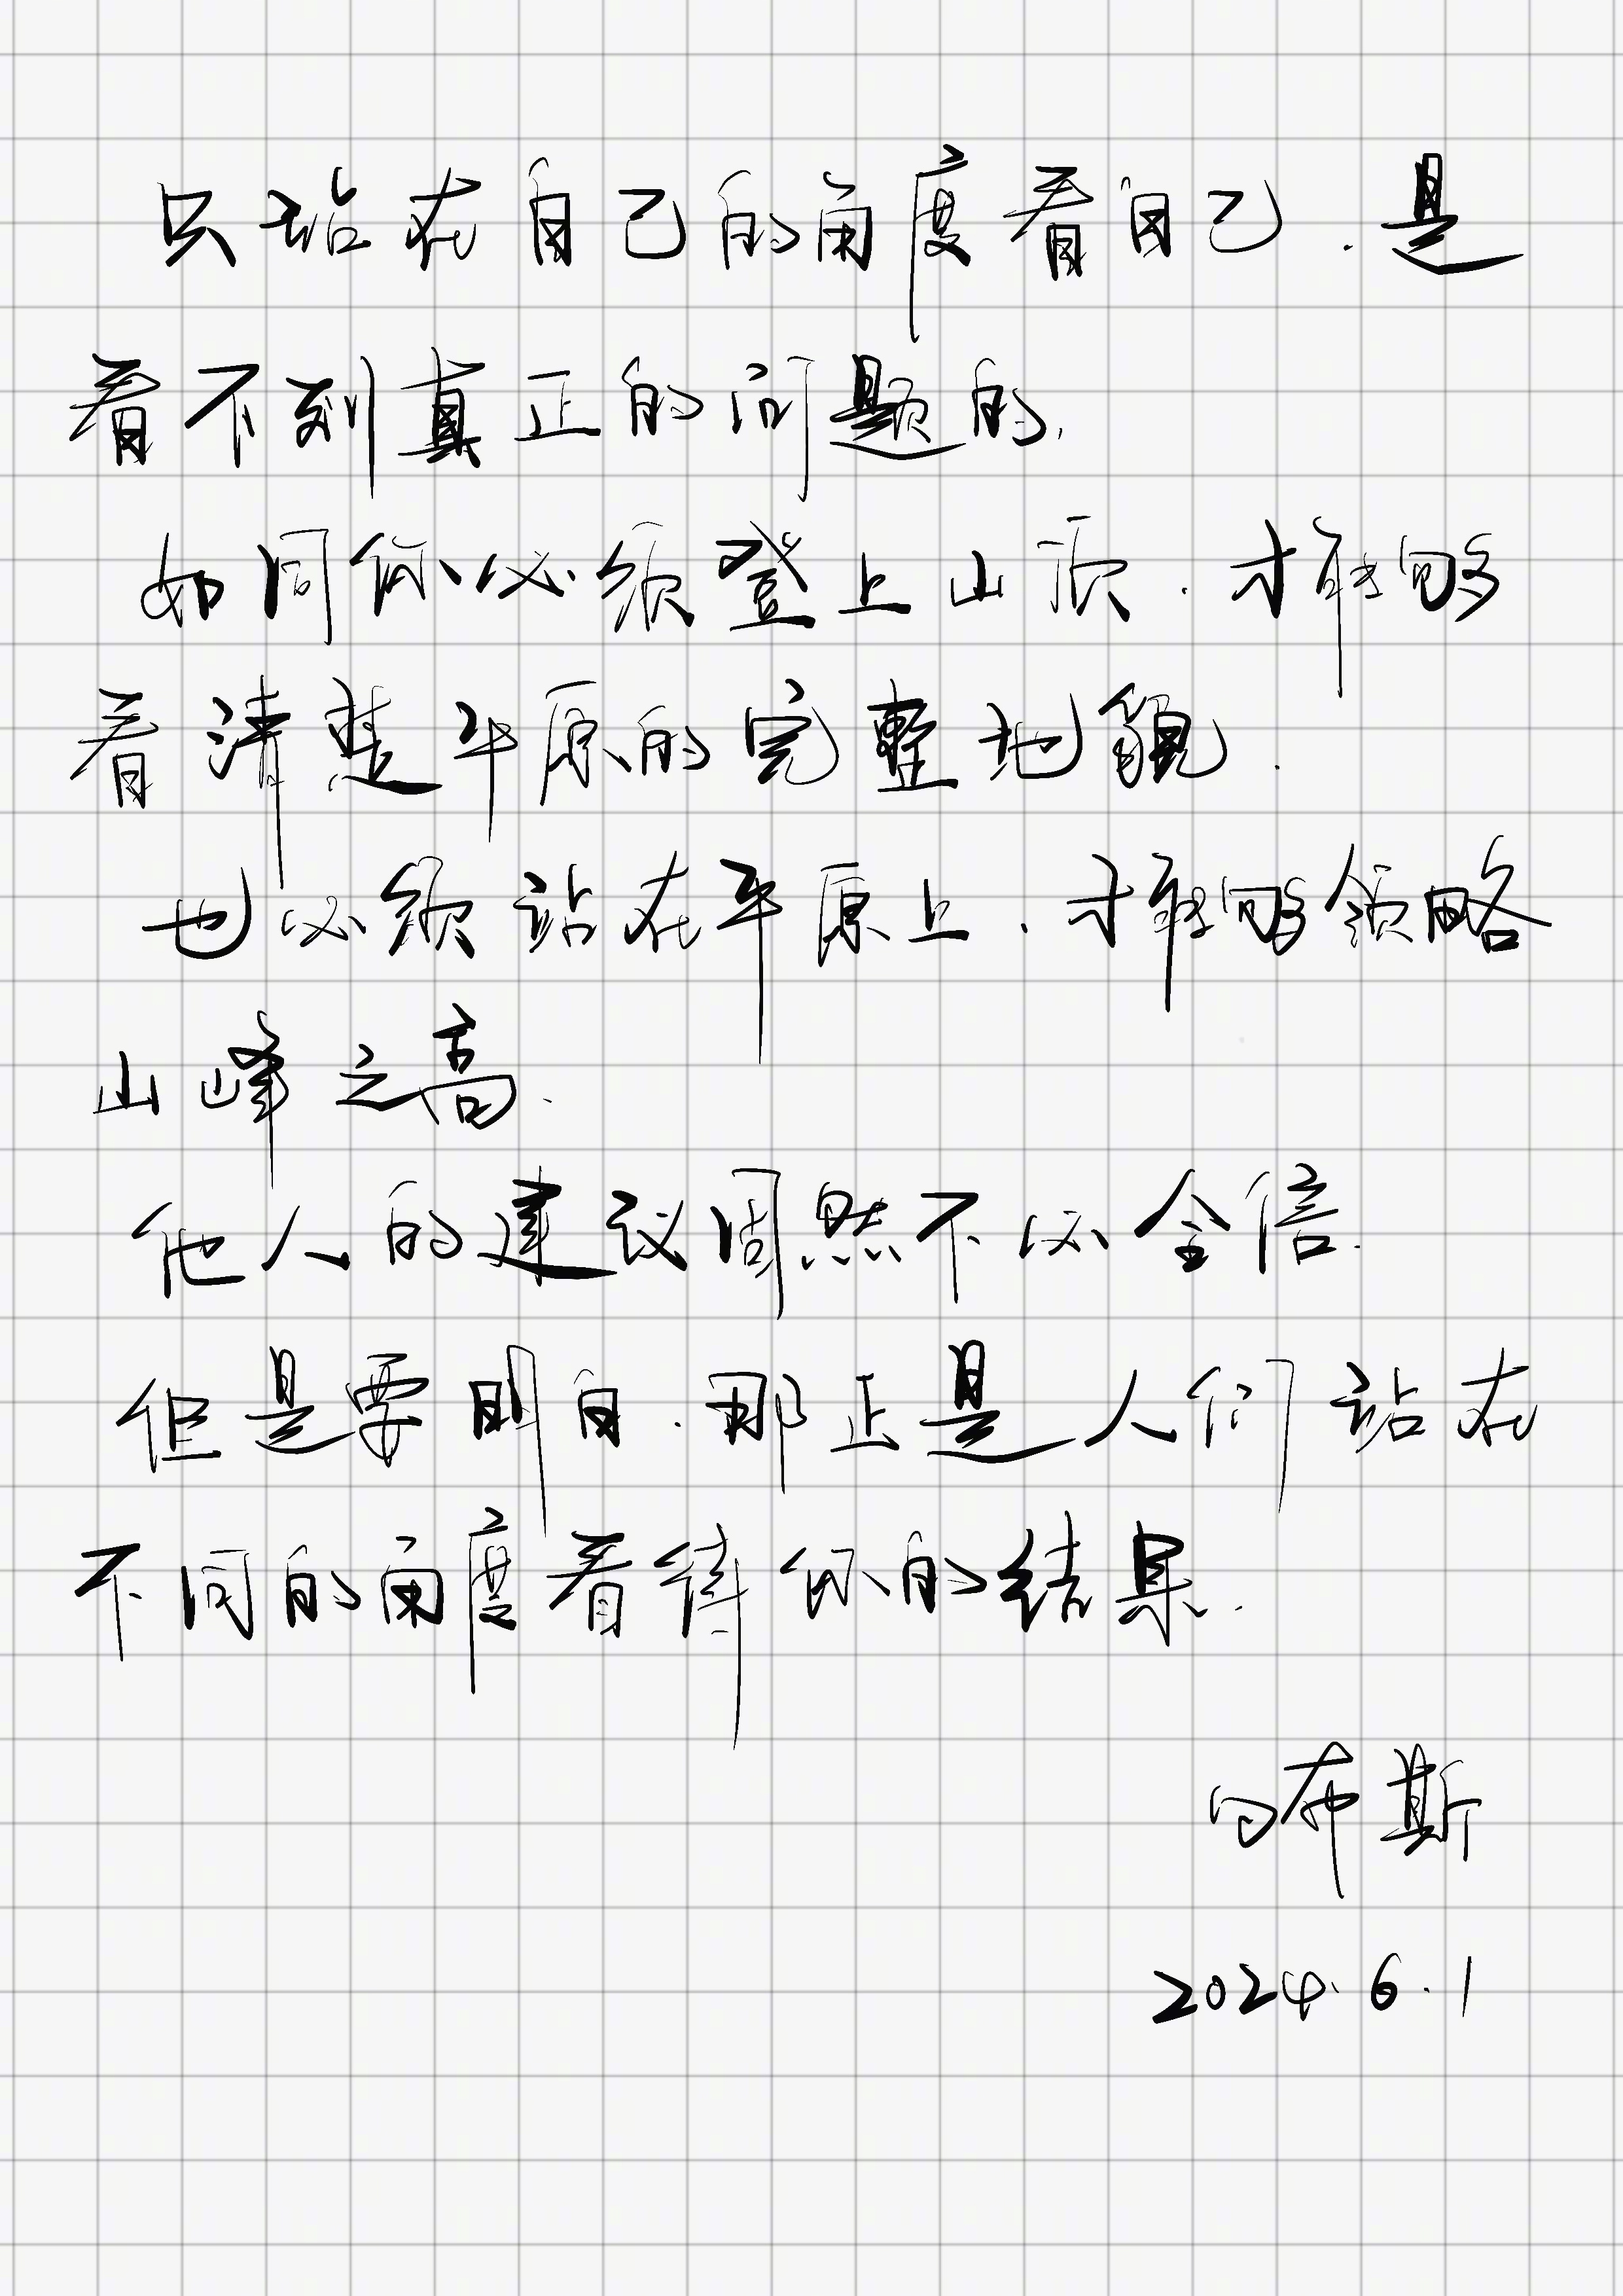 只站在自己的角度看自己.是
看不到真正的问题的.
如同你必须登上山顶.才能够
看清楚平原的完整地貌.
也必须站在平原上.才能够领略
山峰之高.
他人的建议固然不必全信.
但是要明白.那正是人们站在
不同的角度看待你的结果.
布斯
2024.6.1